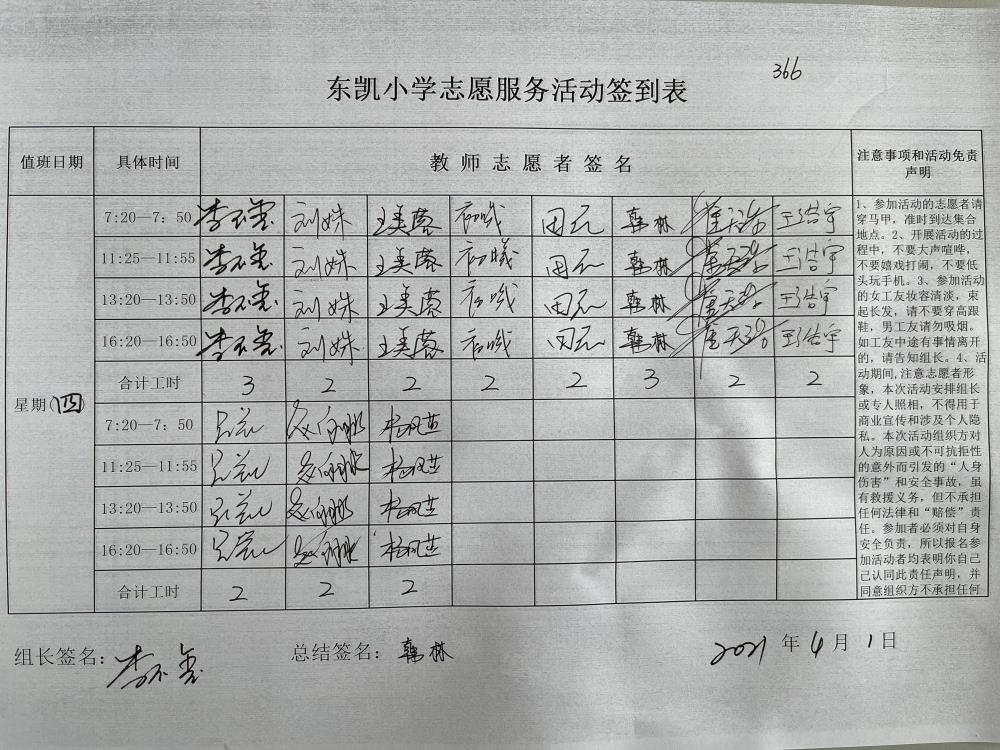 366
东凯小学志愿服务活动签到表
值班日期 具体时间 教师志愿者签名 注意事项和活动免责声明
7:20—7：50 刘姝 王美蓉 田元 韩林 王浩宇
11:25—11:55 刘姝 王美蓉 田元 韩林 王浩宇
13:20—13:50 刘姝 王美蓉 田元 韩林 王浩宇
16:20—16:50 刘姝 王美蓉 田元 韩林 王浩宇
合计工时 3 2 2 2 2 3 2 2
星期(四)
7:20—7：50
11:25—11:55
13:20—13:50
16:20—16:50
合计工时 2 2 2
1、参加活动的志愿者请
穿马甲，准时到达集合
地点。2、开展活动的过
程中，不要大声喧哗，
不要嬉戏打闹，不要低
头玩手机。3、参加活动
的女工友妆容清淡，束
起长发，请不要穿高跟
鞋，男工友请勿吸烟。
如工友中途有事情离开
的，请告知组长。4、活
动期间,注意志愿者形
象，本次活动安排组长
或专人照相，不得用于
商业宣传和涉及个人隐
私。本次活动组织方对
人为原因或不可抗拒性
的意外而引发的“人身
伤害”和安全事故，虽
有救援义务，但不承担
任何法律和“赔偿”责
任。参加者必须对自身
安全负责，所以报名参
加活动者均表明你自己
己认同此责任声明，并
同意组织方不承担任何
组长签名： 总结签名：韩林 2021年4月1日